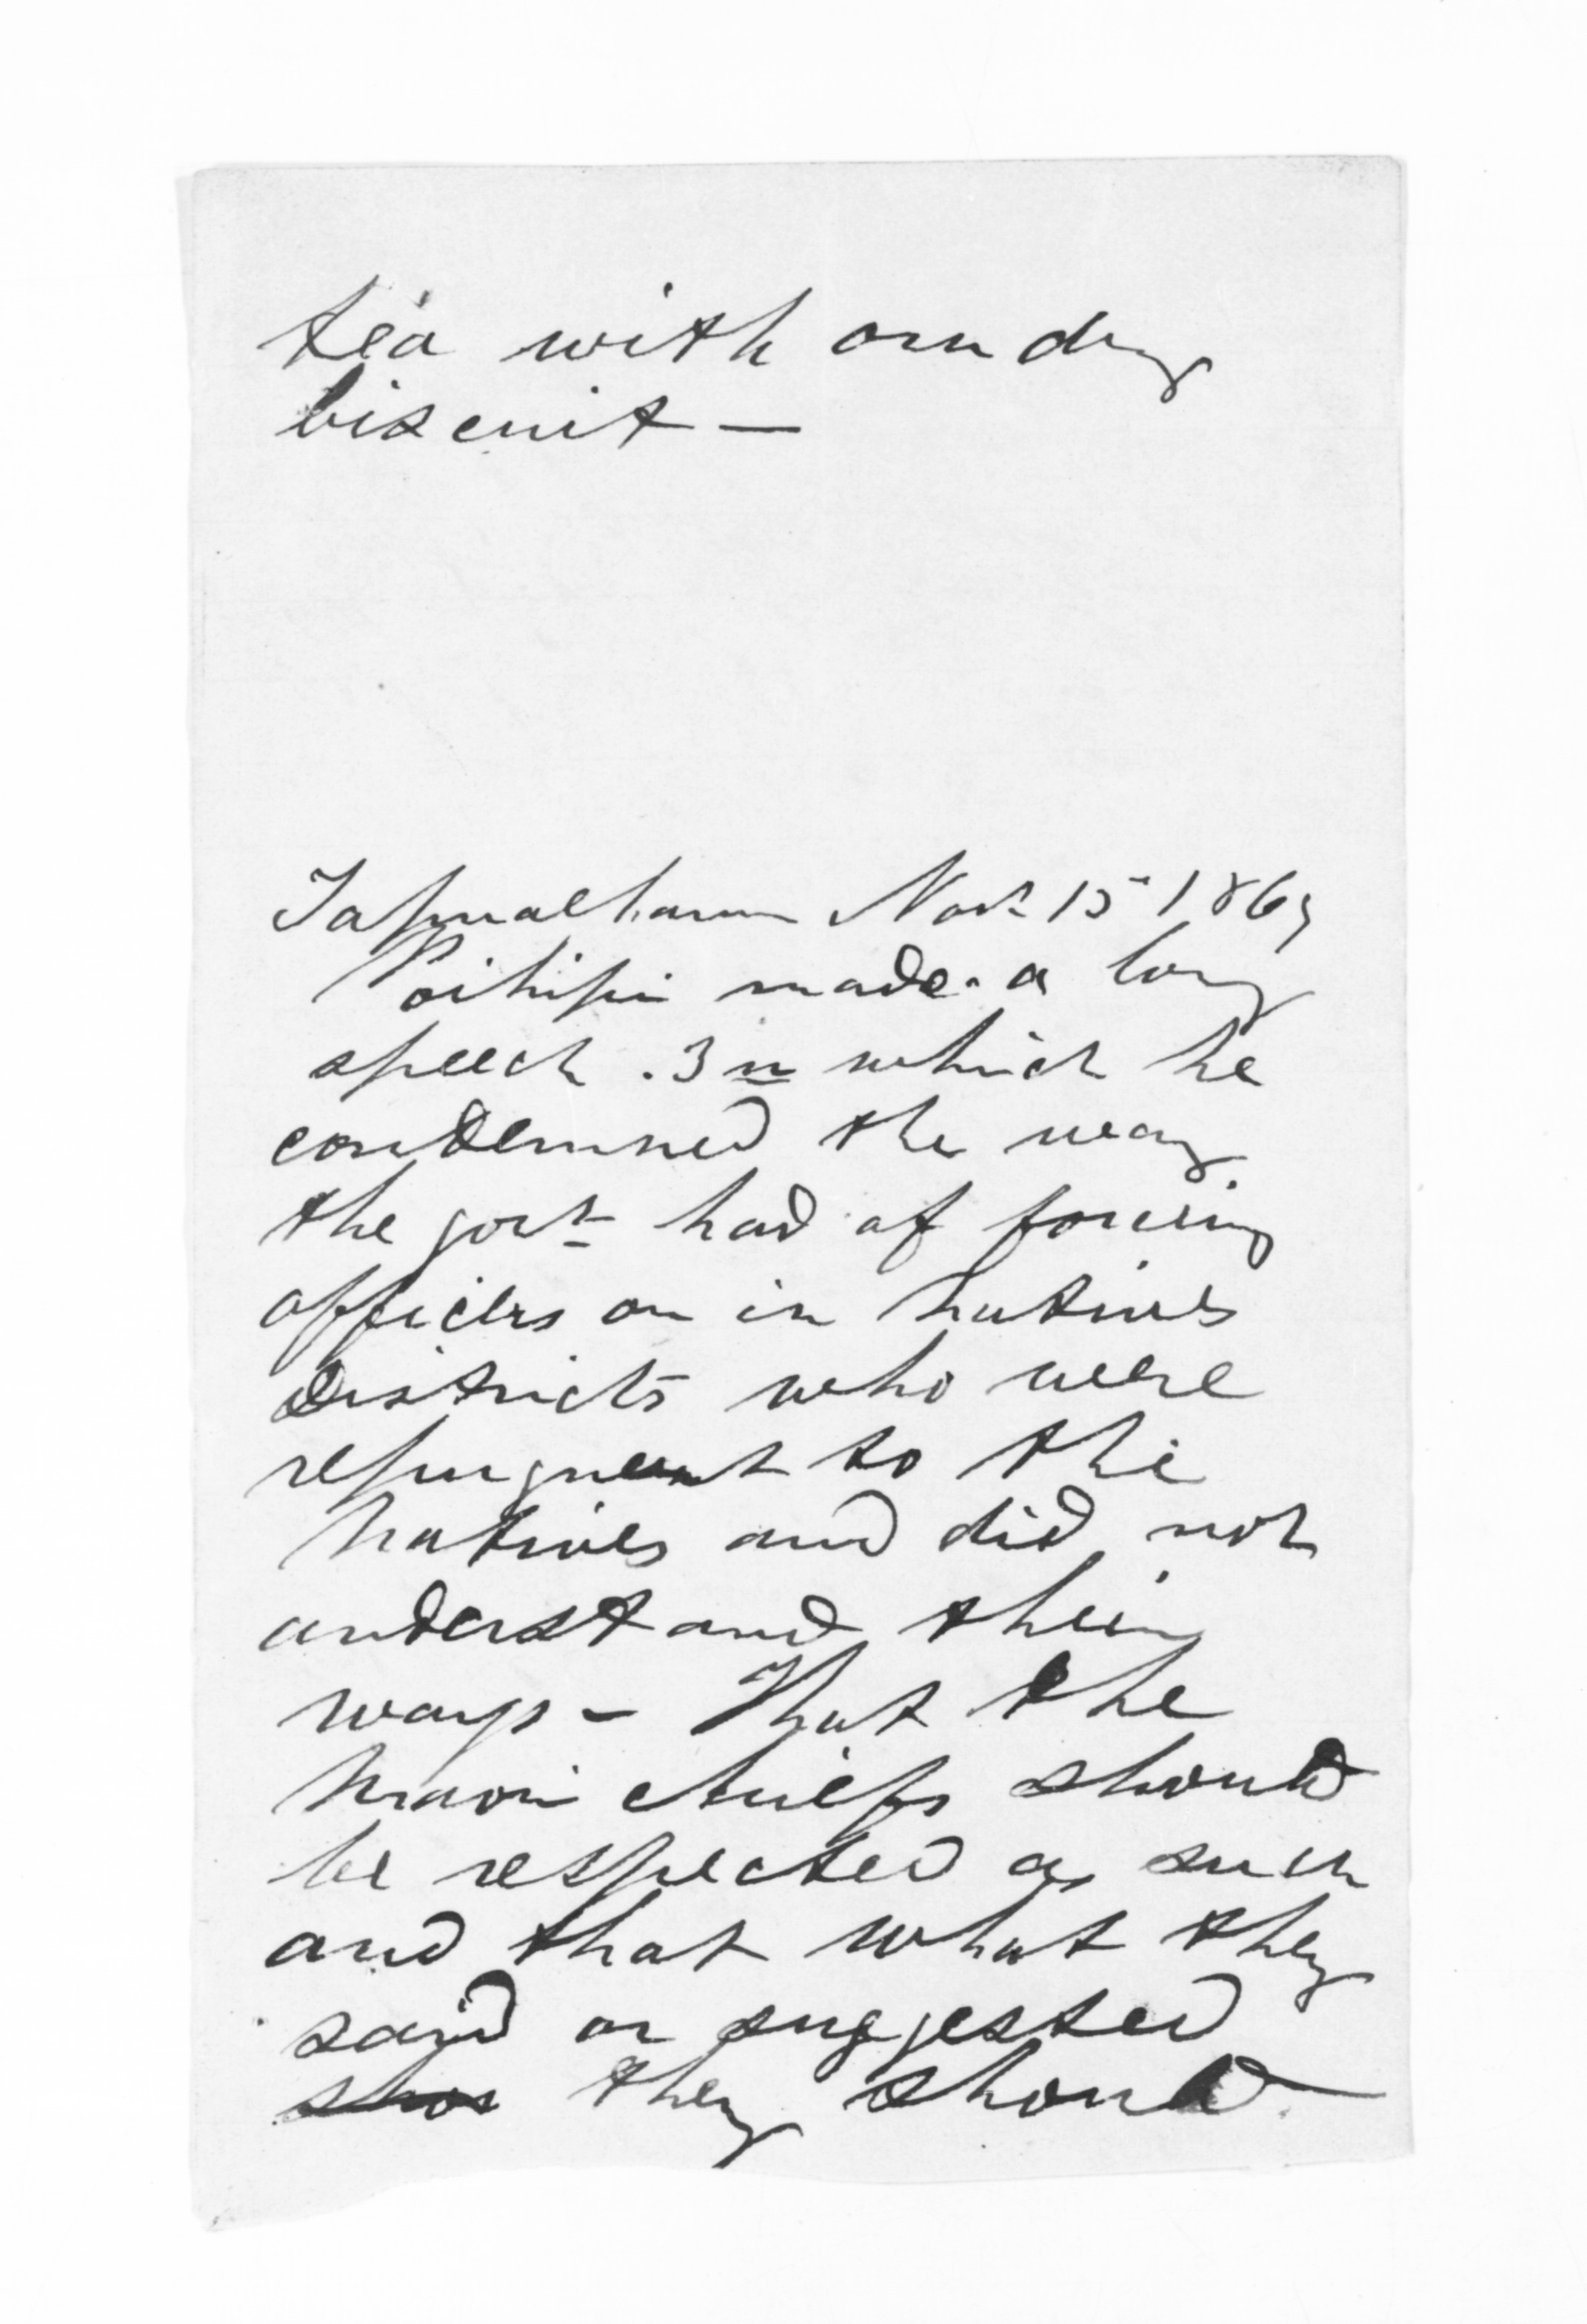 tea with our dry
biscuit —
Tapuaeharuru Novr 15 1869
Poihipi made a long
speech. In which he
condemned the way
the govt had of forcing
officers on in natives
districts who were
repugnent to the
natives and did not
understand their
ways - That the
Maori chiefs should
be respected as such
and that what they
said or suggested
they should